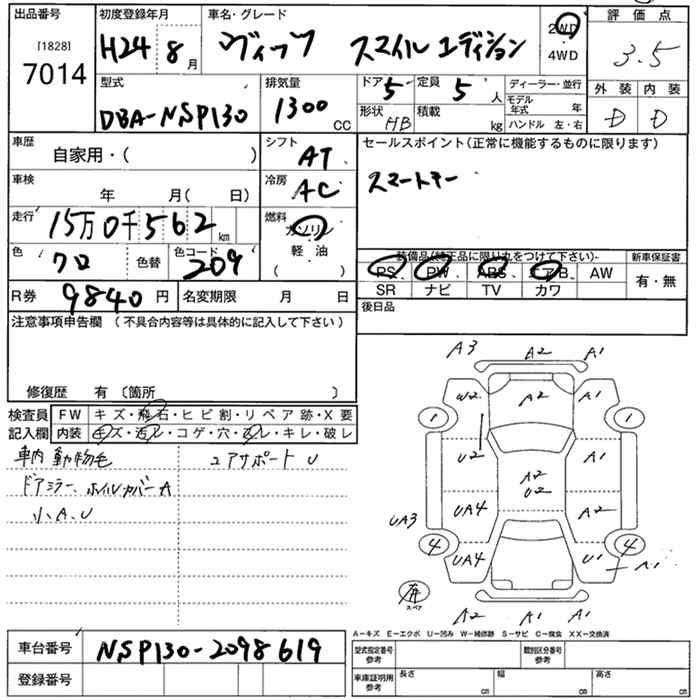 出品番号 初度登録年月 車名・グレード 評価点
[1828]
7014 H24 8月 ヴィッツ スマイルエディション 2WD 4WD 3.5
型式 排気量 ドア 5 定員 5人 ディーラー・並行 外装 内装
DBA-NSP130 1300 CC 形状 HB 積載 kg モデル年式 年 D D
ハンドル 左・右
車歴 自家用・( ) シフト AT セールスポイント(正常に機能するものに限ります)
車検 年 月(日) 冷房 AC スマートキー
走行 15万0千562km 燃料 ガソリン
色 クロ 色替 色コード 209 軽・油 ( )
装備品(純正品に限り丸をつけて下さい) 新車保証書
PS PW ABS エアB AW 有・無
SR ナビ TV カワ
R券 9840円 名変期限 月 日 後日品
注意事項申告欄 (不具合内容等は具体的に記入して下さい)
修復歴 有 〔箇所 〕
検査員 FW キズ・飛石・ヒビ割・リペア跡・X要
記入欄 内装 キズ・汚レ・コゲ・穴・スレ・キレ・破レ
車内 動物毛
ドアミラー、ホイルカバーA
小、A、U
A3 A2 A1
W2 A2
1 1
U2 A1
A2
U2
UA3 UA4 A2
4 4
UA4 U1 A1
有
スペア
A2 A2 A1
A-キズ E-エクボ U-凹み W-補修跡 S-サビ C-腐食 XX-交換済
車台番号 NSP130-2098619
型式指定番号 参考 類別区分番号 参考
登録番号
車庫証明用 参考 長さ cm 幅 cm 高さ cm